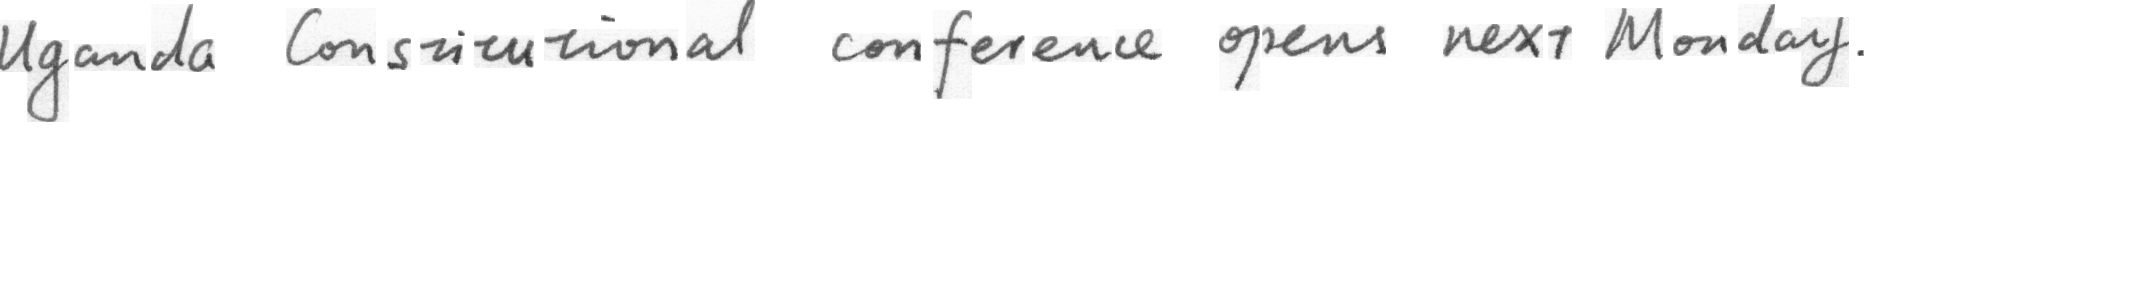 Uganda Constitutional conference opens next Monday.